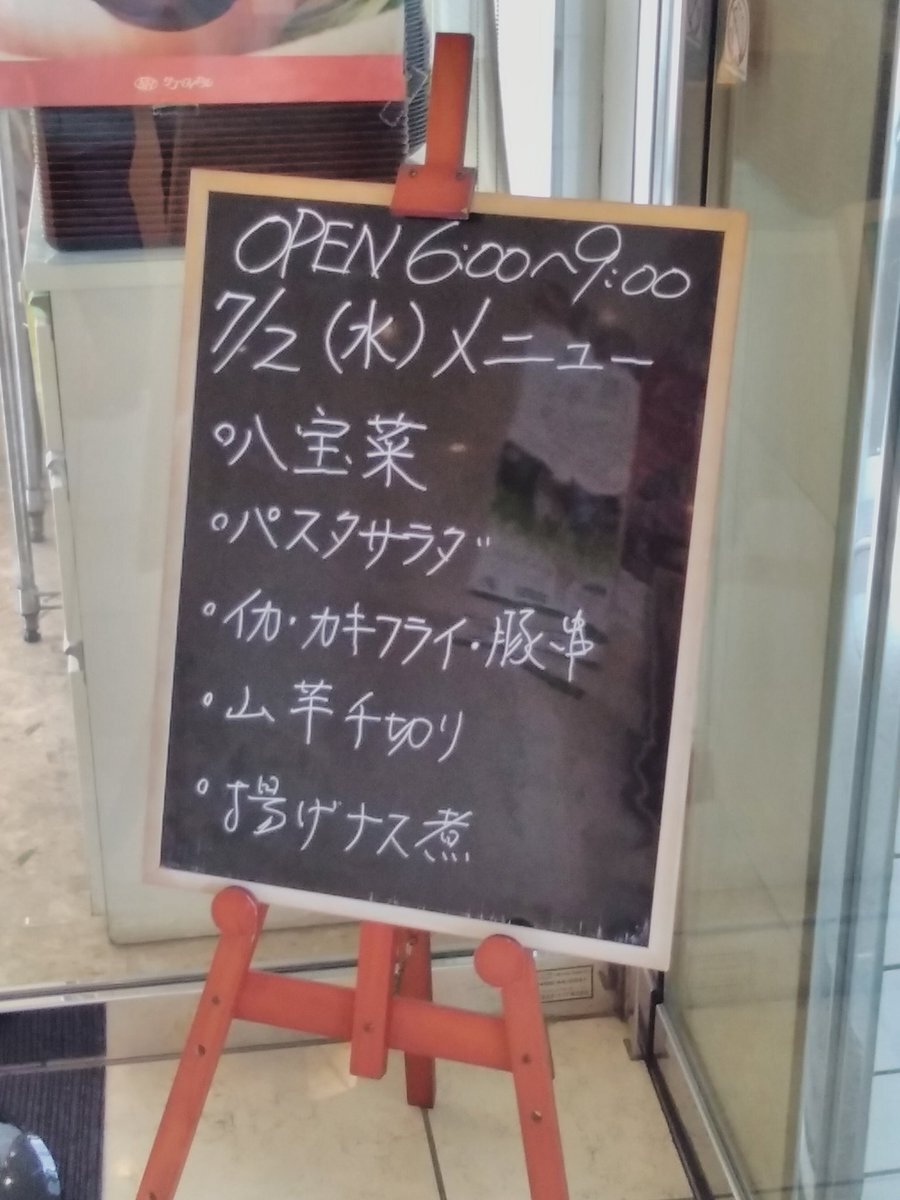 OPEN 6:00〜9:00
7/2(水)メニュー
°八宝菜
°パスタサラダ
°イカ・カキフライ・豚串
°山芋千切り
°揚げナス煮